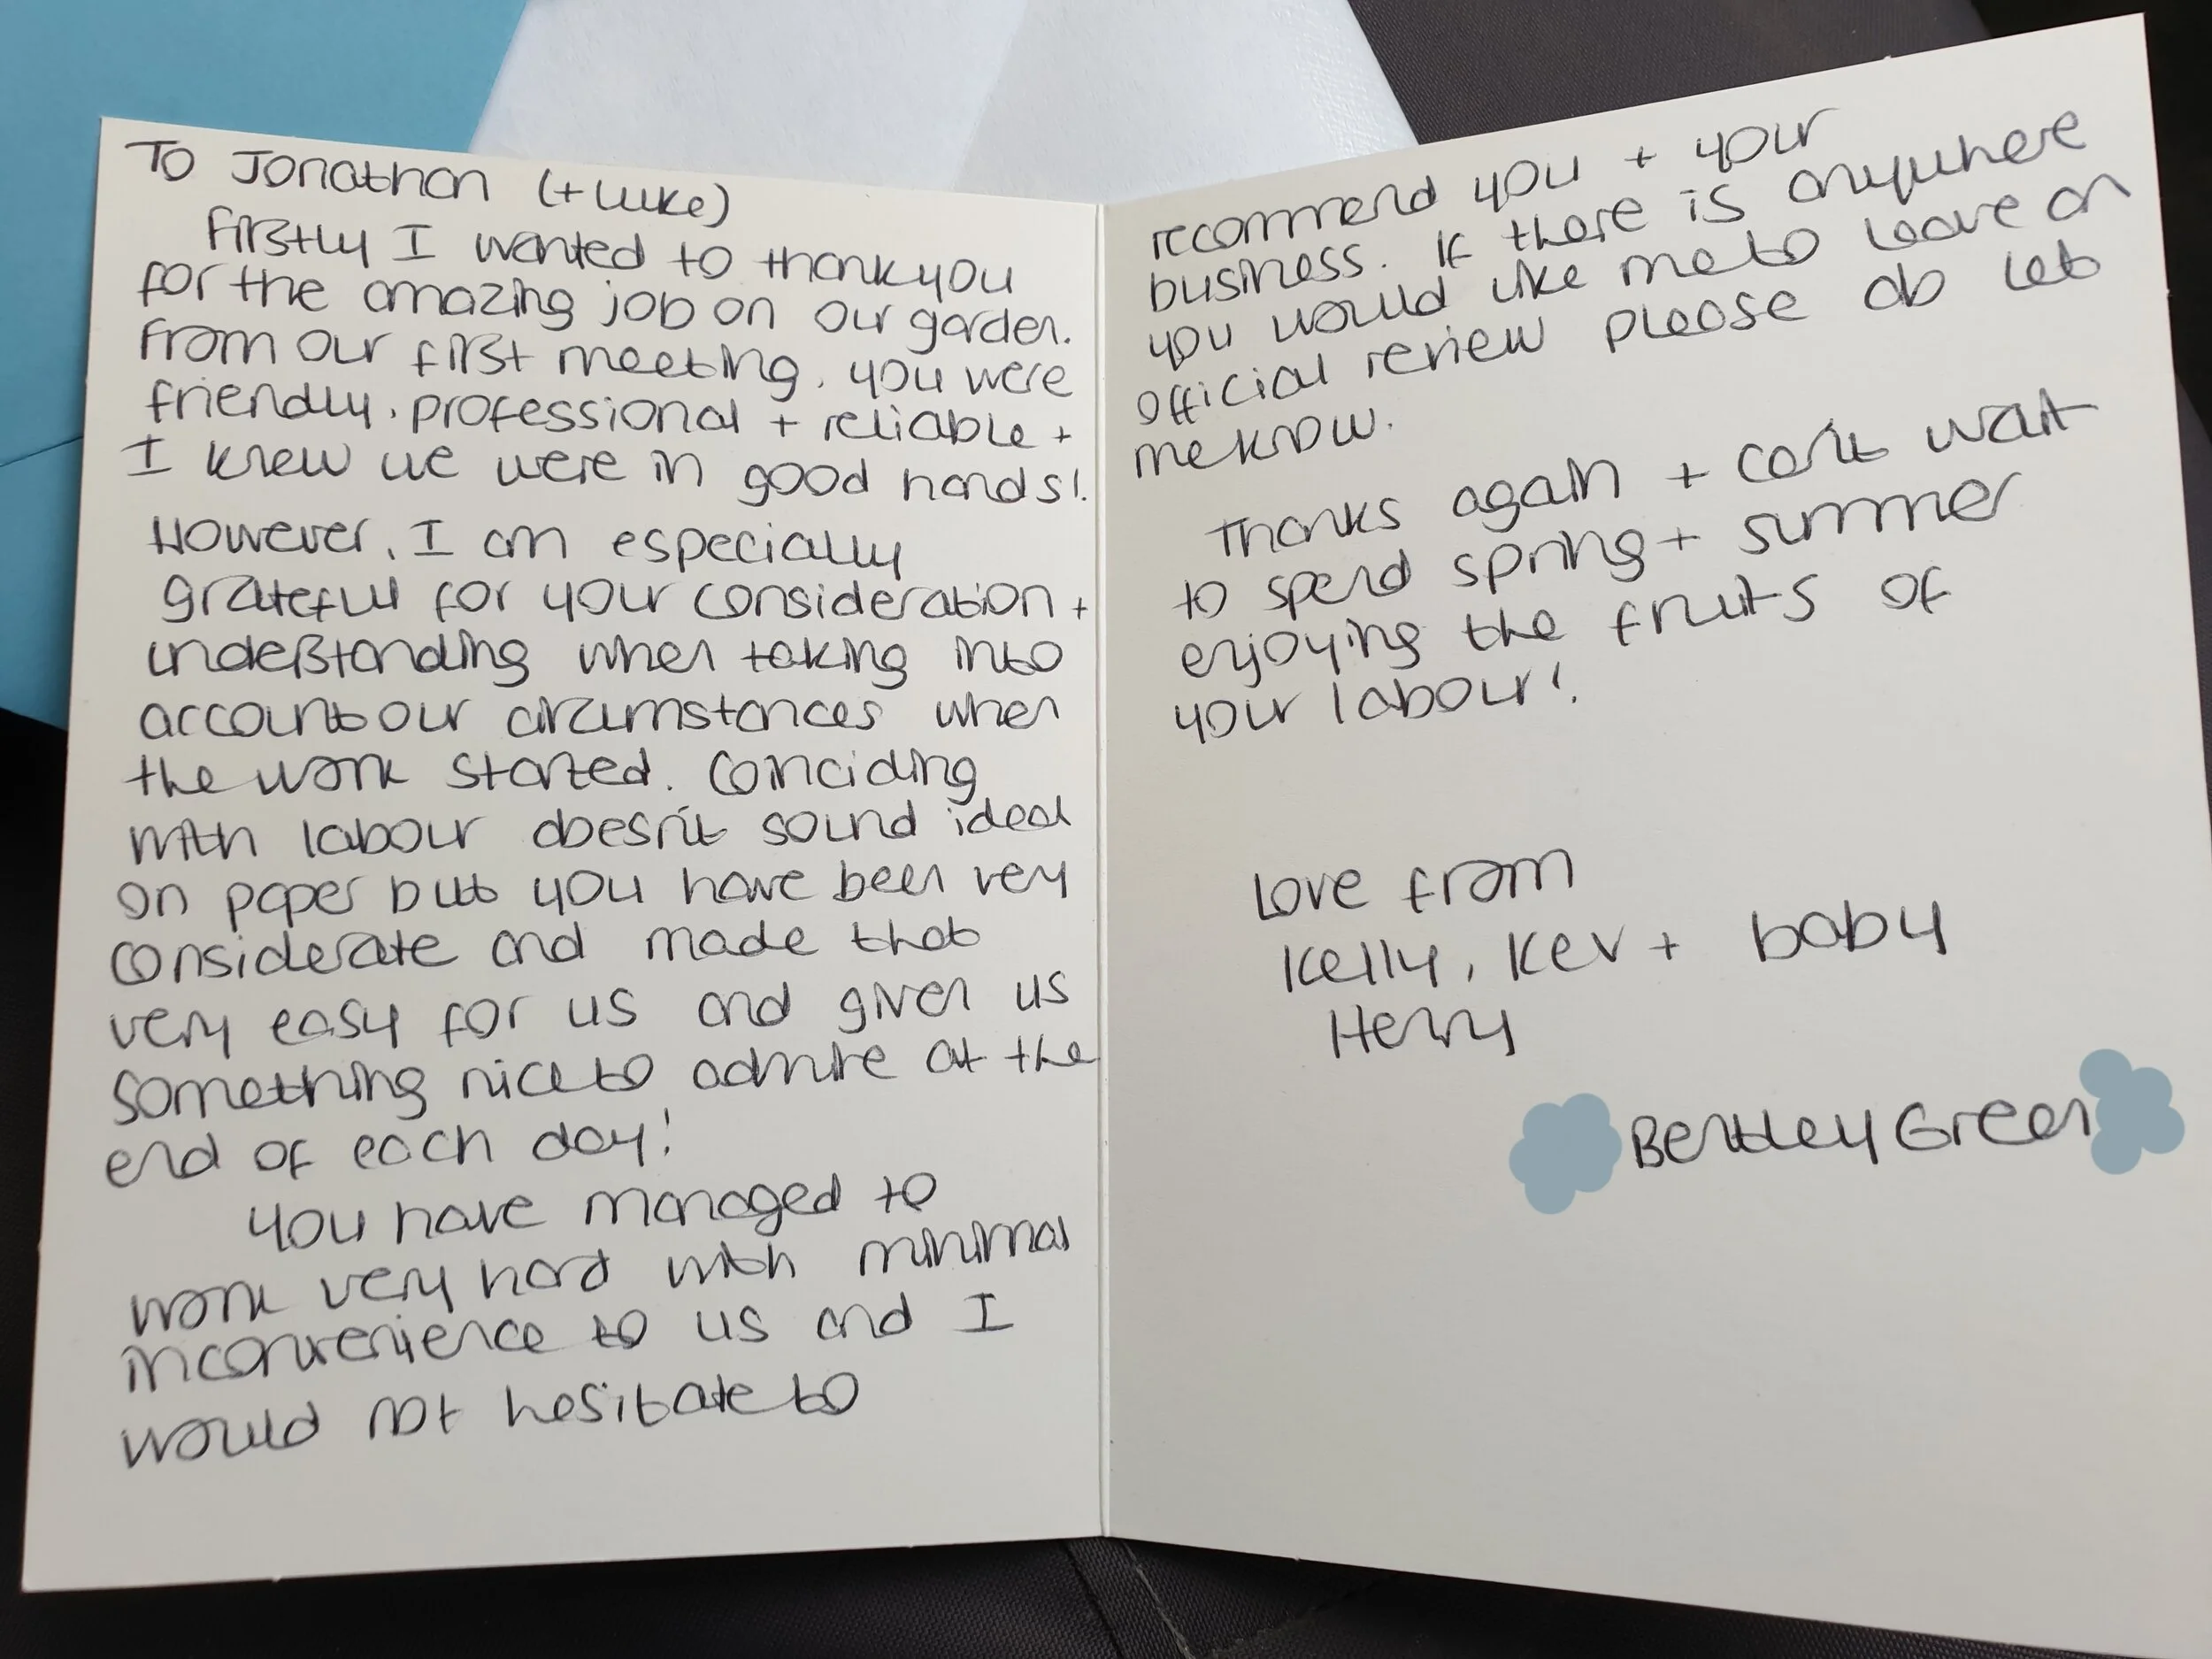 To Jonathon (+ Luke)
Firstly I wanted to thankyou
for the amazing job on our garden.
From our first meeting, you were
friendly, professional + reliable +
I knew we were in good hands!
However, I am especially
grateful for your consideration +
understanding when taking into
account our circumstances when
the work started. Coinciding
with labour doesn't sound ideal
on paper but you have been very
considerate and made that
very easy for us and given us
something nice to admire at the
end of each day!
You have managed to
work very hard with minimal
inconvenience to us and I
would not hesitate to
recommend you + your
business. If there is anywhere
you would like me to leave an
official review please do let
me know.
Thanks again + can't wait
to spend spring + summer
enjoying the fruits of
your labour!
Love from
Kelly, Kev + baby
Henry
Bentley Green